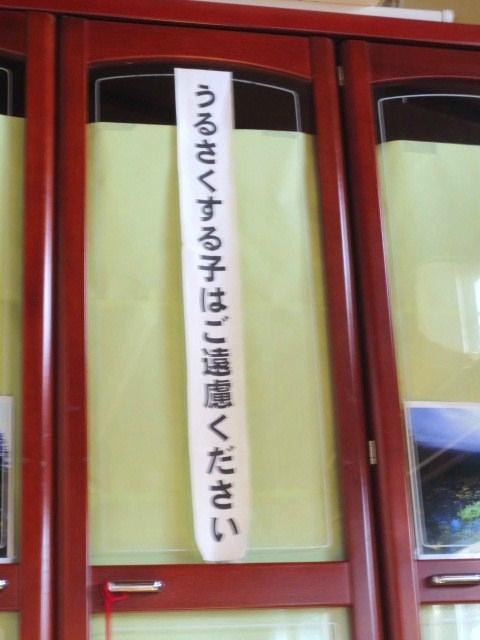 うるさくする子はご遠慮ください